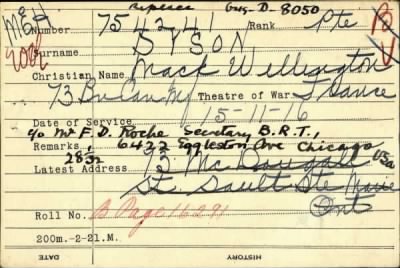 Reperec Gug. D-8050
M.E.H.
2002
Number 754241 Rank Pte B
Surname DYSON, V
Christian Name Mack Wellington
73 Bn Can Inf Theatre of War France
15-11-16
Date of Service
c/o Mr F. D. Roche Secretary B.R.T.,
Remarks 6422 Eggleston Ave Chicago USA
2832
Latest Address 73 McDougall
St. Sault Ste Marie
Ont
Roll No. B Page 16291
200m.-2-21.M.
HISTORY